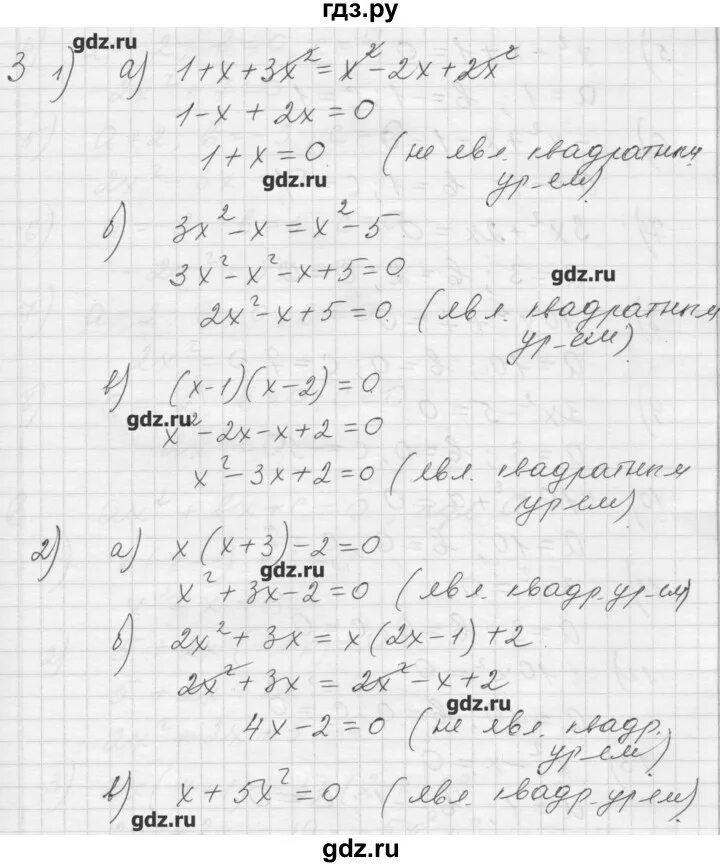 гдз.ру
gdz.ru
3 1) а) 1+x+3x²=x²-2x+2x²
1-x+2x=0
1+x=0 (не явл. квадратным
ур-ем)
gdz.ru
б) 3x²-x=x²-5
3x²-x²-x+5=0
gdz.ru
2x²-x+5=0 (явл. квадратным
ур-ем)
в) (x-1)(x-2)=0
gdz.ru
x²-2x-x+2=0
x²-3x+2=0 (явл. квадратным
ур-ем)
2) а) x(x+3)-2=0
gdz.ru
x²+3x-2=0 (явл. квадр. ур-ем)
б) 2x²+3x=x(2x-1)+2
2x²+3x=2x²-x+2
gdz.ru
4x-2=0 (не явл. квадр.
ур-ем)
в) x+5x²=0 (явл. квадр. ур-ем)
gdz.ru
gdz.ru